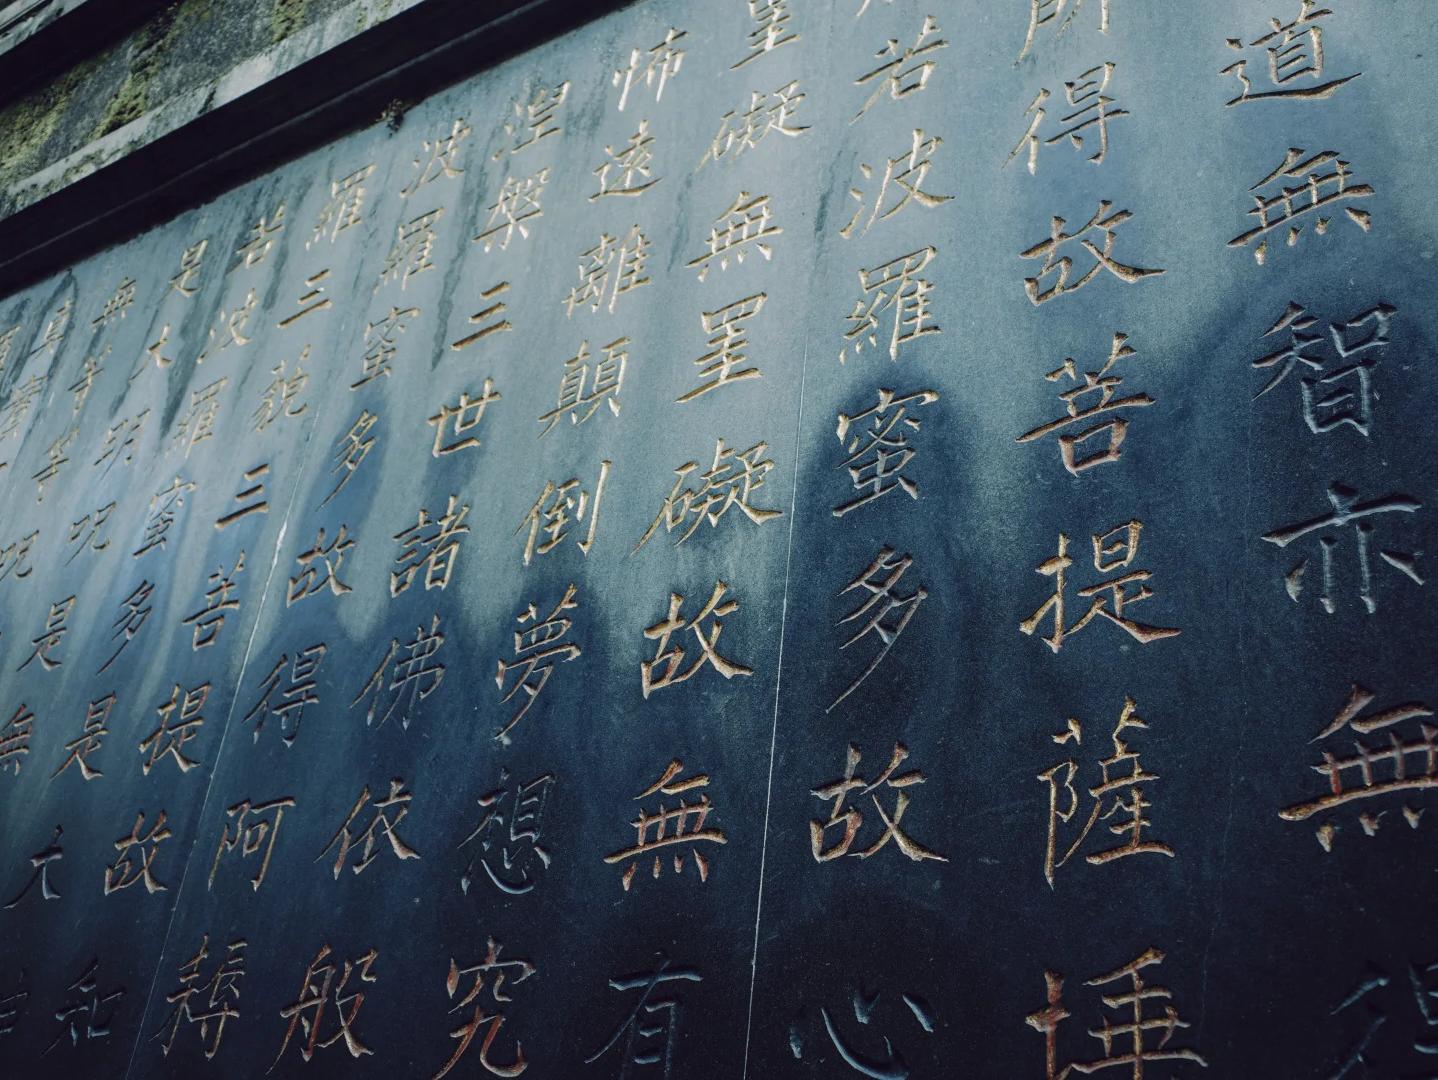 道無智亦無得
所得故菩提薩埵
若波羅蜜多故心
罣礙無罣礙故無有
怖遠離顛倒夢想究
涅槃三世諸佛依般
波羅蜜多故得阿耨
羅三藐三菩提故知
若波羅蜜多是大神
是大明咒是無
無等等咒
真實